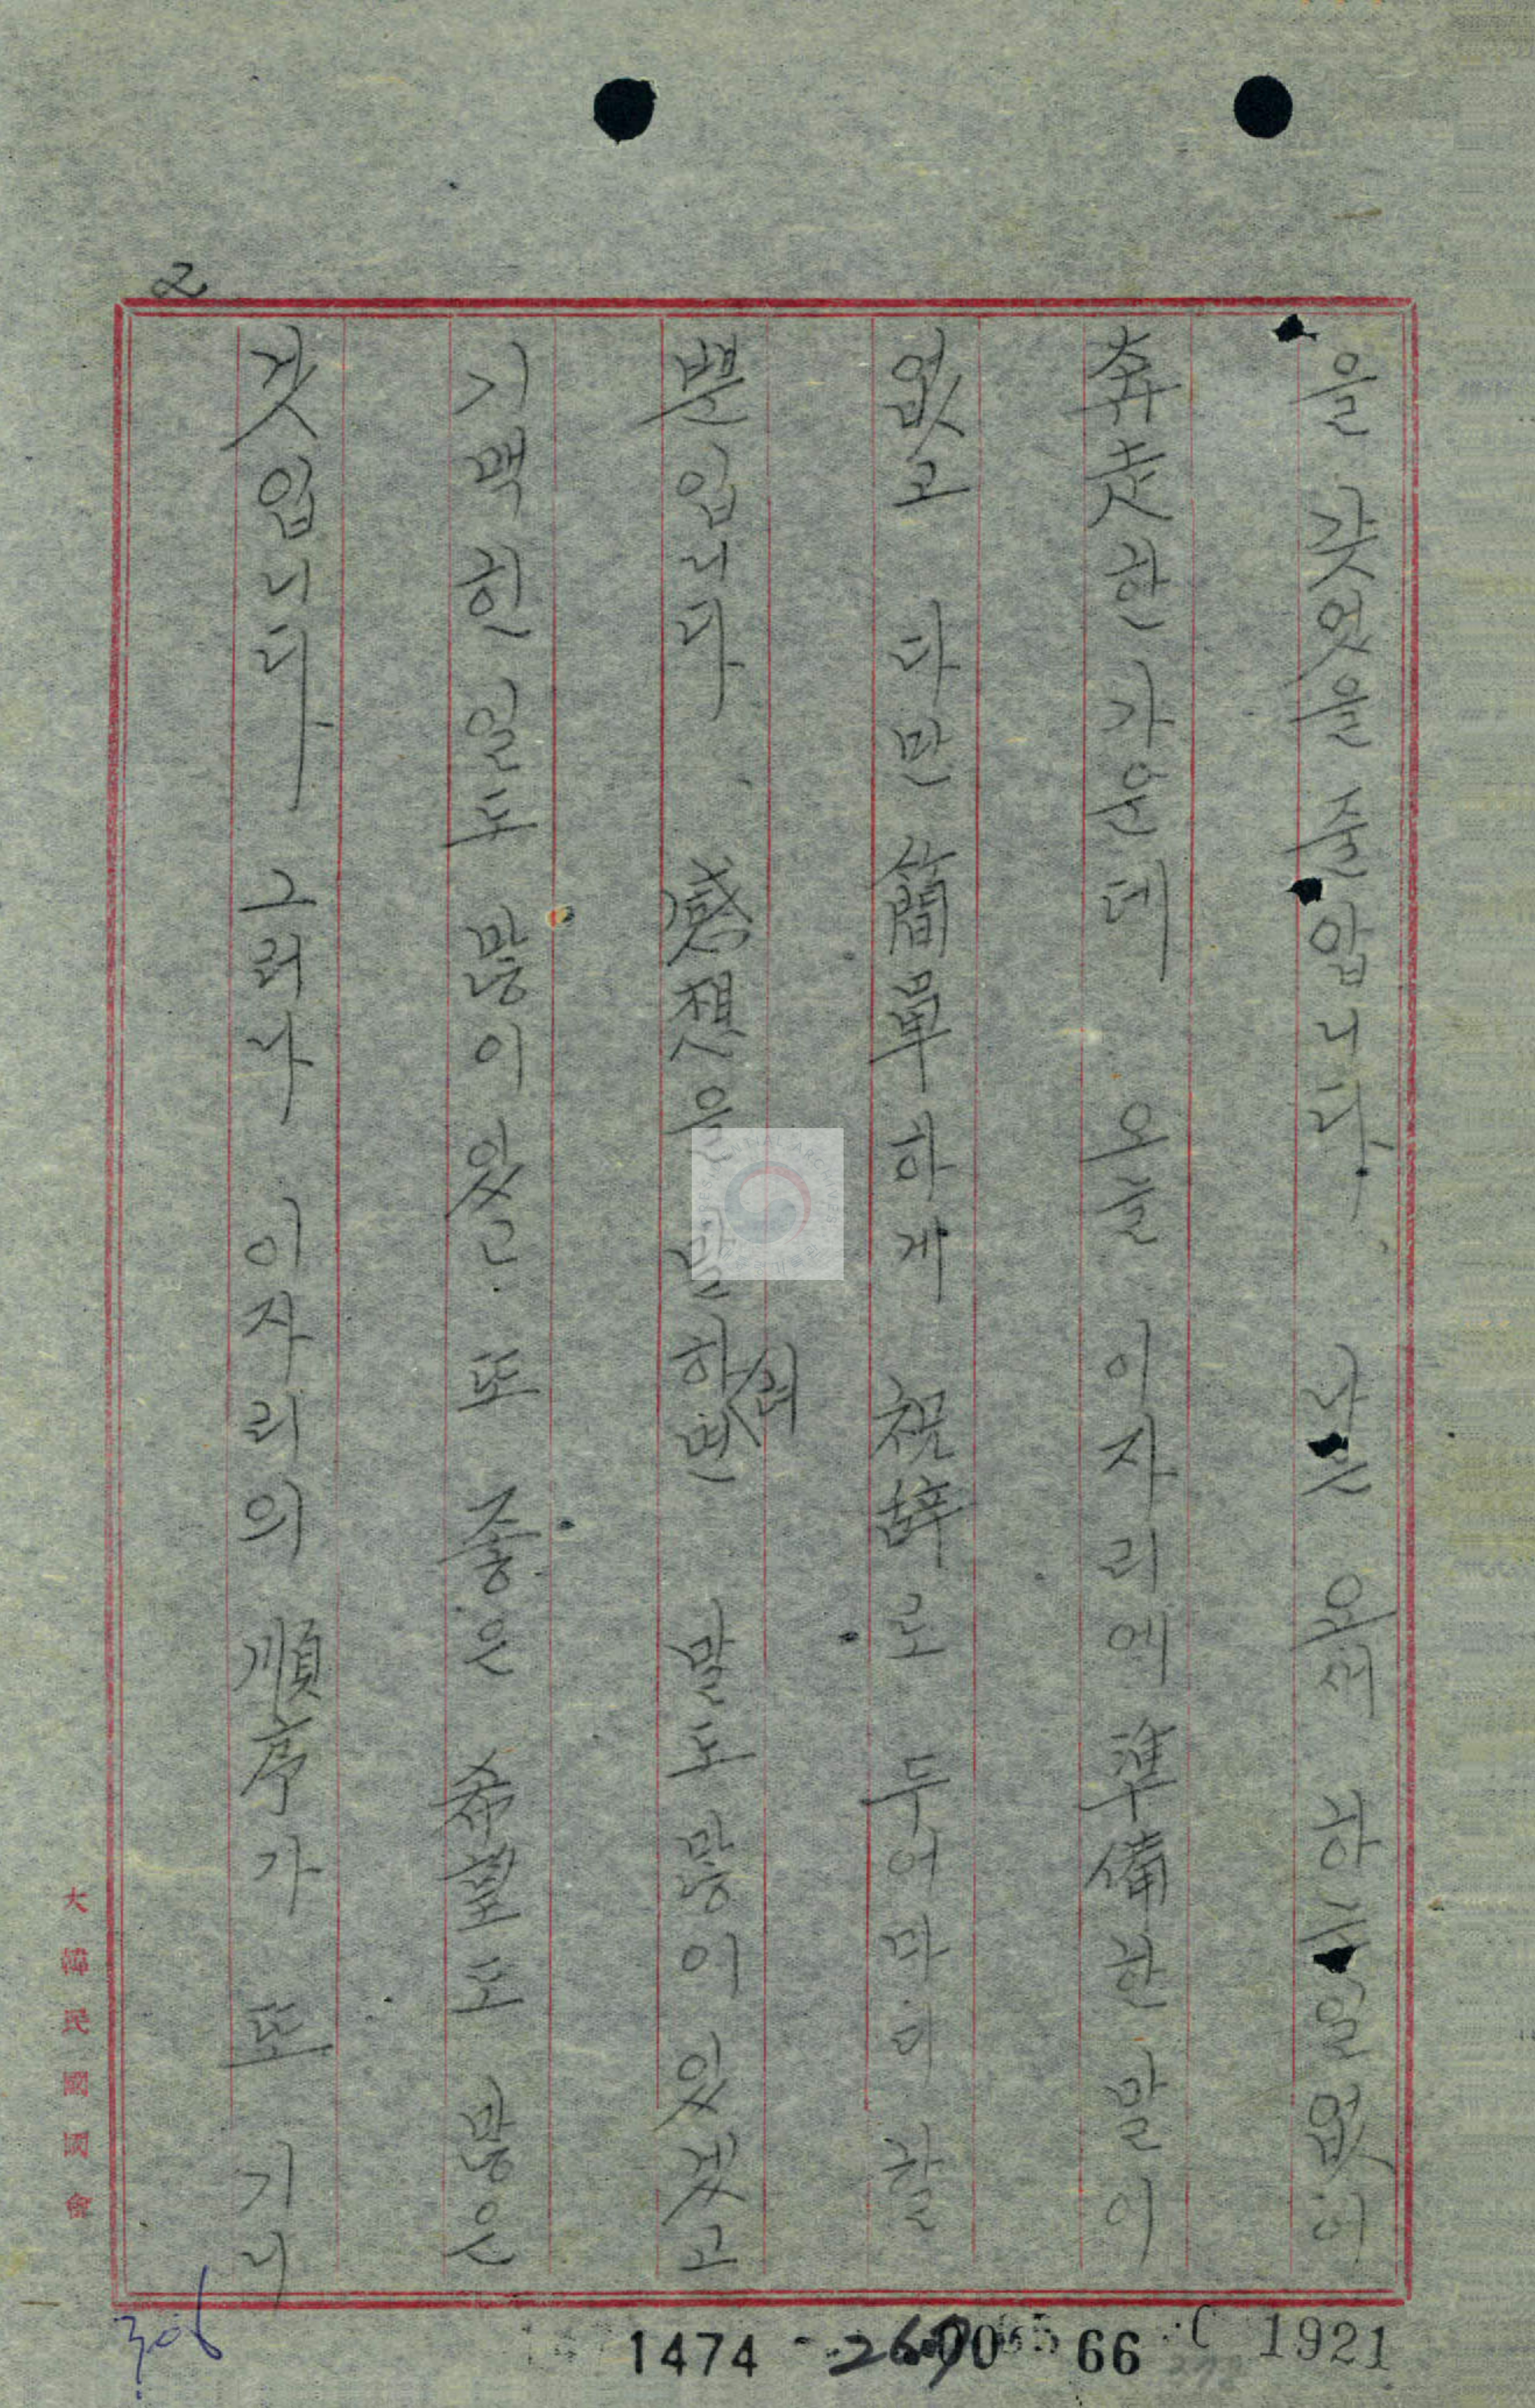 2
을 갖엇을 줄 압니다. 나는 와서 하는 일 없이
奔走한 가운데 오늘 이자리에 準備한 말이
없고 다만 簡單하게 祝辞로 두어마디 할
뿐입니다. 感想을 말하면 말도 많이 있겟고
기맥힌 일도 많이 있고. 또 좋은 希望도 많은
것입니다 그러나 이자리의 順序가 또 기니
大韓民國國會
306
1474
66
1921